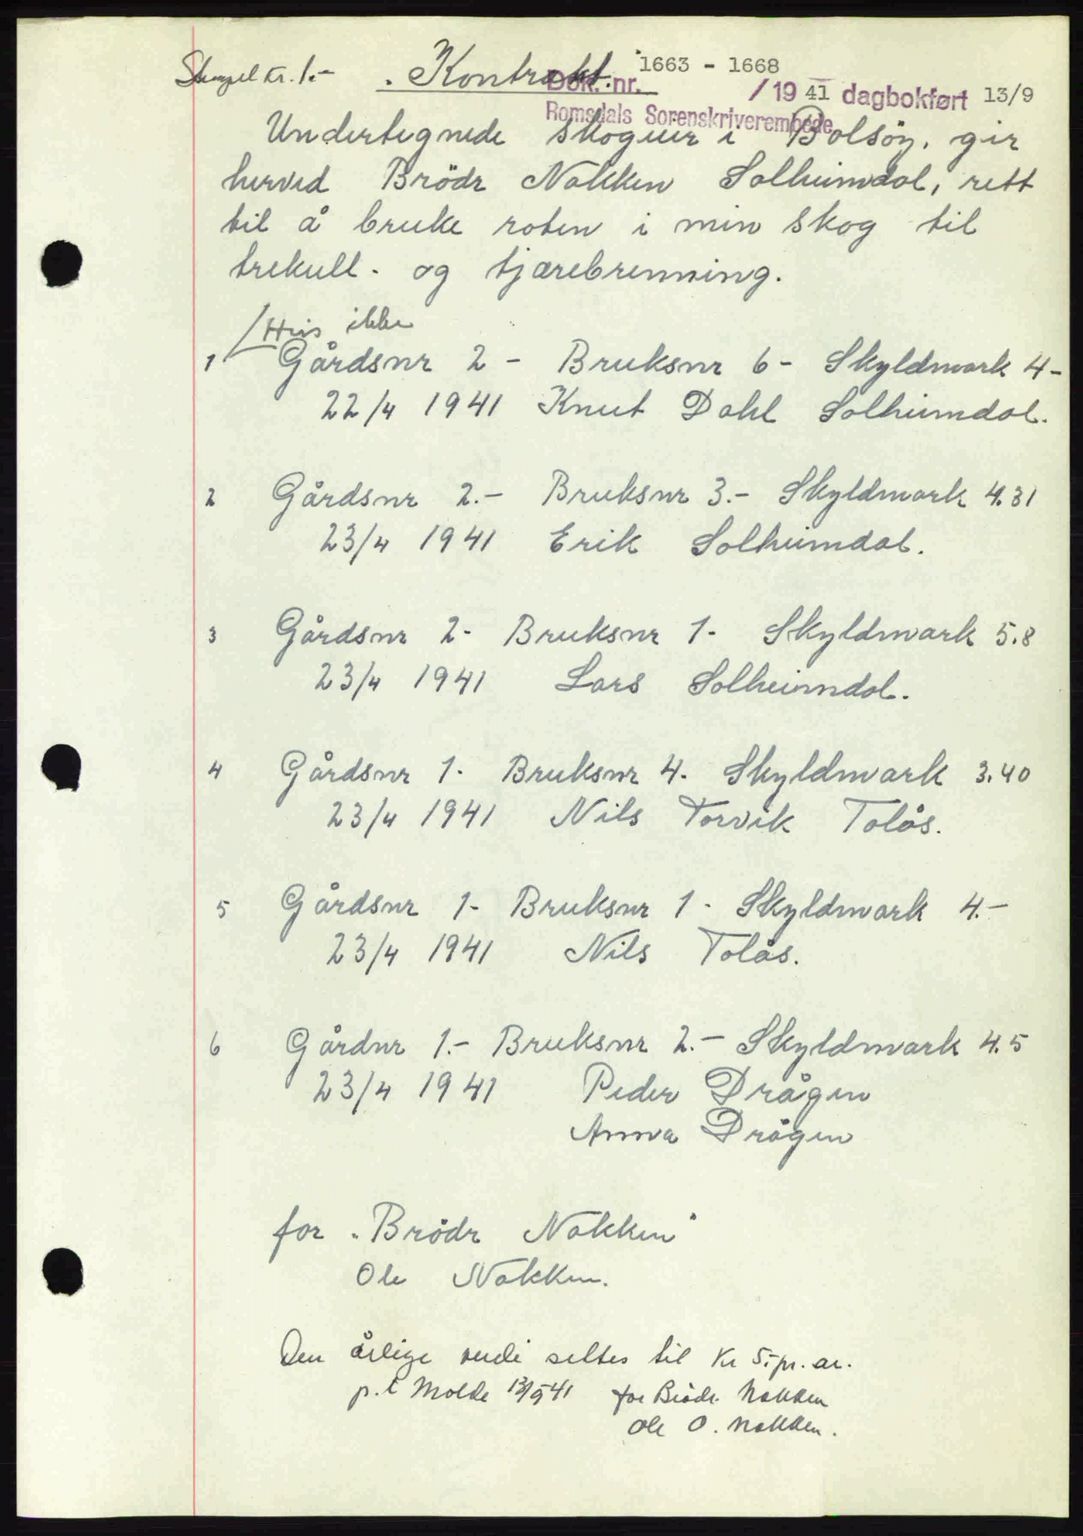 Stempel kr. 1.- . Kontrakt. 1663 - 1668
Dok. nr. /19 41 dagbokført 13/9
Romsdals Sorenskriverembede
Undertegnede skogeier i Bolsöy, gir
herved Brödr Nakken Solheimdal, rett
til å bruke roten i min skog til
trekull- og tjærebrenning.
Hvis ikke
1 Gårdsnr 2 - Bruksnr 6 - Skyldmark 4-
22/4 1941 Knut Dahl Solheimdal.
2 Gårdsnr 2.- Bruksnr 3.- Skyldmark 4.31
23/4 1941 Erik Solheimdal.
3 Gårdsnr 2- Bruksnr 1- Skyldmark 5.8
23/4 1941 Lars Solheimdal.
4 Gårdsnr 1- Bruksnr 4. Skyldmark 3.40
23/4 1941 Nils Torvik Tolås.
5 Gårdsnr 1- Bruksnr 1- Skyldmark 4.-
23/4 1941 Nils Tolås.
6 Gårdnr 1.- Bruksnr 2.- Skyldmark 4.5
23/4 1941 Peder Drågen
Anna Drågen
for "Brödr Nakken"
Ole Nakken.
Den årlige verdi settes til Kr 5,- pr. år.
p.t Molde 13/9 41 for Brödr. Nakken
Ole O. Nakken.